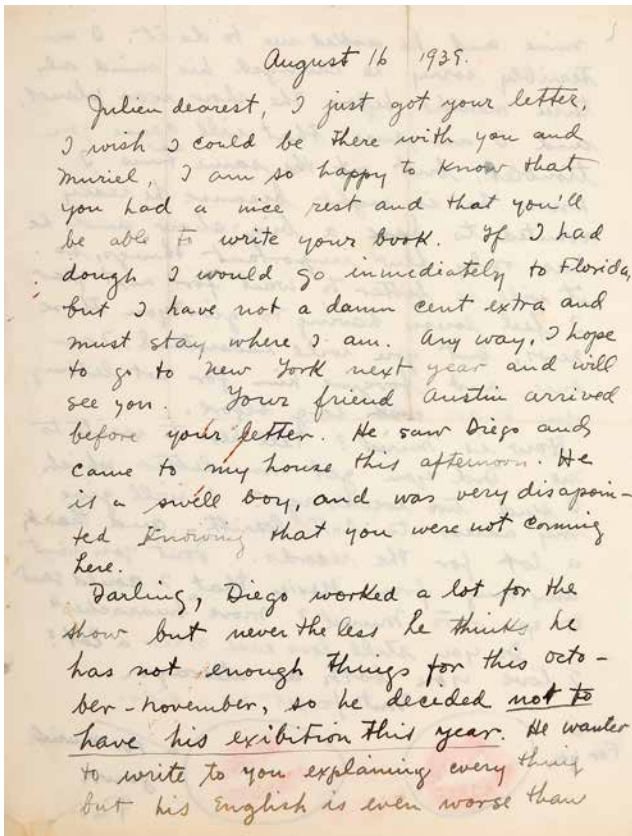 August 16 1939.
Julien dearest, I just got your letter,
I wish I could be there with you and
Muriel, I am so happy to know that
you had a nice rest and that you'll
be able to write your book. If I had
dough I would go immediately to Florida,
but I have not a damn cent extra and
must stay where I am. Any way, I hope
to go to New York next year and will
see you. Your friend Austin arrived
before your letter. He saw Diego and
came to my house this afternoon. He
is a swell boy, and was very disapoin-
ted knowing that you were not coming
here.
Darling, Diego worked a lot for the
show but never the less he thinks he
has not enough things for this octo-
ber-november, so he decided not to
have his exibition this year. He wanted
to write to you explaining every thing
but his English is even worse than